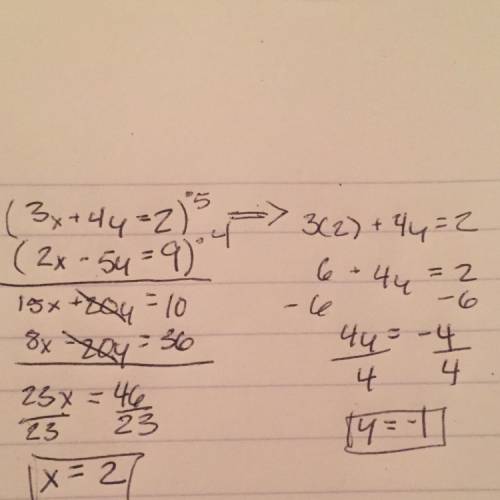 (3x+4y=2)·5
(2x-5y=9)·4
15x+20y=10
8x-20y=36
23x = 46
23 23
x=2
=> 3(2)+4y=2
6+4y=2
-6 -6
4y=-4
4 4
y=-1